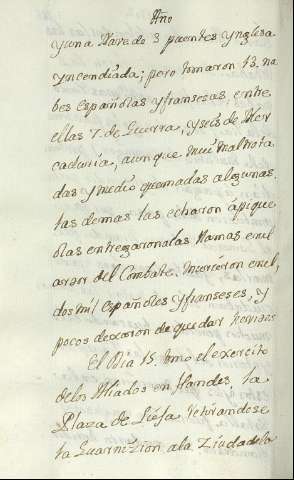 Año
y una Nave de 3 puentes Ynglesa
yncendiada; pero tomaron 13. na
bes españolas y fransesas, entre
ellas 7. de Guerra, y seis de Mer
caduria, aunque mui maltrata
das y medio quemadas algunas,
las demas las echaron á pique
ô las entregaron a las llamas en el
ardor del Combate. murieron en el,
dos mil españoles y franseses, y
pocos dexaron de quedar heridos
El Dia 15. tomo el exercito
de los Aliados en flandes, la
Plaza de Lieja retirandose
la Guarnizion a la Ziudadela